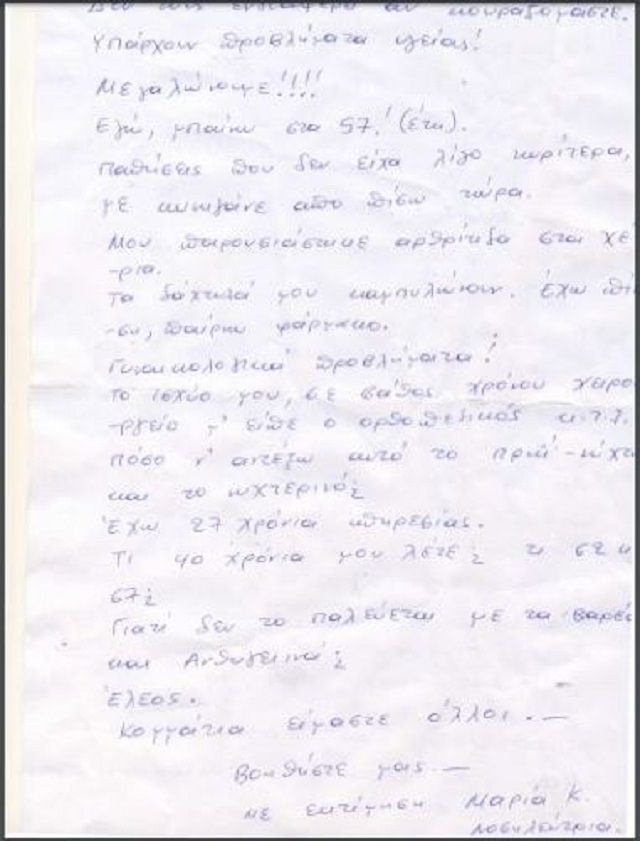 Δεν τους ενδιαφέρει αν κουραζόμαστε.
Υπάρχουν προβλήματα υγείας!
Μεγαλώνουμε!!!!
Εγώ, μπαίνω στα 57! (έτη).
Παθήσεις που δεν είχα λίγο νωρίτερα,
με κυνηγάνε από πίσω τώρα.
Μου παρουσιάστηκε αρθρίτιδα στα χέ
-ρια.
Τα δάχτυλά μου καμπυλώνουν. Έχω
-ση, παίρνω φάρμακο.
Γυναικολογικά προβλήματα!
Το ισχύο μου, σε βάθος χρόνου χειρο
-ργείο μ' είπε ο ορθοπεδικός κ.τ.λ.
Πόσο ν' αντέξω αυτό το πρωί-νύχτα
και το νυχτερινό;
Έχω 27 χρόνια υπηρεσίας.
Τι 40 χρόνια μου λέτε; τι 62 κ
67;
Γιατί δεν το παλεύεται με τα βαρέα
και Ανθυγεινά;
Έλεος.
Κομμάτια είμαστε όλλοι.—
Βοηθήστε μας.—
Με εκτίμηση Μαρία Κ.
Νοσηλεύτρια.